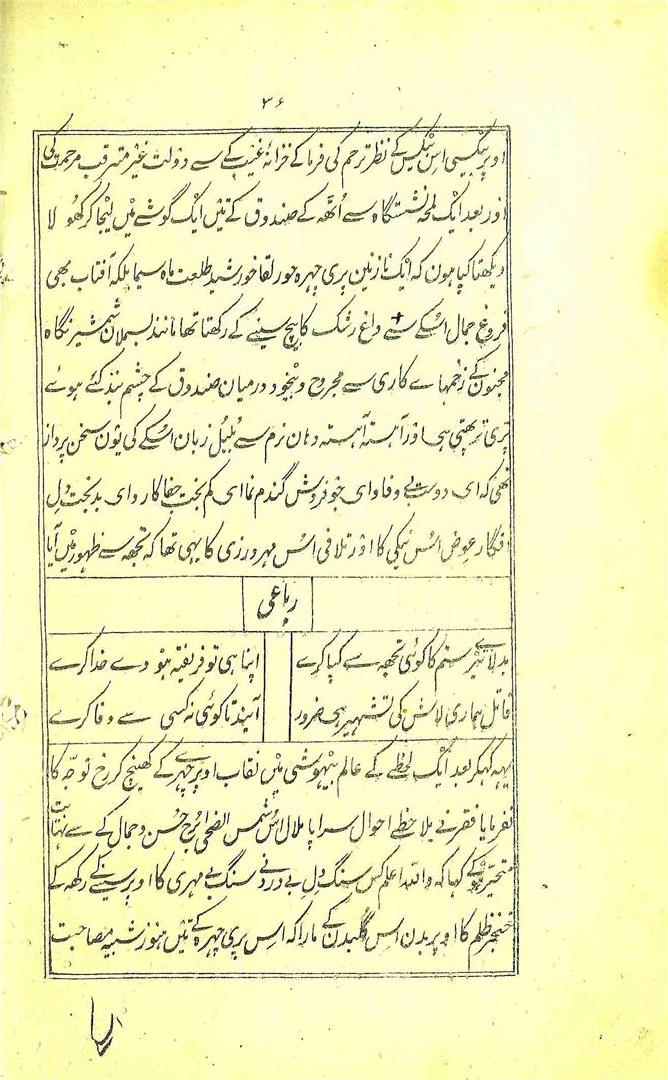 ۳۶
اوپر بیکسی اس بیکس کے نظر ترحم کی فرما کے خزانۂ غیب کے سے دولت غیر مترقب مرحمت کی
اور بعد ایک لمحہ نشستگاہ سے اُٹھہ کے صندوق کے تئیں ایک گوشے میں لیجا کر کھولا
دیکھتا کیا ہون کہ ایک نازنین پری چہرہ حور لقا خورشید طلعت ماہ سیما بلکہ آفتاب بھی
فروغ جمال اسکے سے داغ رشک کا بیچ سینے کے رکھتا تھا مانند بسملان شمشیر نگاہ
مجنون کے زخمہاے کاری سے مجروح و بیخود درمیان صندوق کے چشم بند کئے ہوئے
پڑی تڑپھتی ہی اور آہستہ آہستہ دہان نرم سے بلبل زبان اسکے کی یون سخن پرداز
تھی کہ ای دوست بے وفا و ای جو فروش گندم نما ای کم بخت جفا کار و ای بد بخت دل
افگار عوض اس نیکی کا اور تلافی اس مہرورزی کا یہی تھا کہ تجھہ سے ظہور میں آیا
رباعی
بدلا تیرے ستم کا کوئی تجھہ سے کیا کرے اپنا ہی تو فریفتہ ہووے خدا کرے
قاتل ہماری لاش کی تشہیر ہی ضرور آیندا تا کوئی نہ کسی سے وفا کرے
یہہ کہکر بعد ایک لحظے کے عالم بیہوشی میں نقاب اوپر چہرے کے کھینچ کر رخ توجہ کا
نفرمایا فقر نے بملاحظے احوال سراپا ملال اس شمس الضحی برج حسن و جمال کے سے نہایت
متحیر ہو کے کہا کہ واللہ اعلم کس سنگ دل بے درد نے سنگ بے مہری کا اوپر سینے کے رکھہ کے
خنجر ظلم کا اوپر بدن اس گلبدن کے مارا کہ اس پری چہرہ کے تئیں ہنوز شبیہ مصاحبت